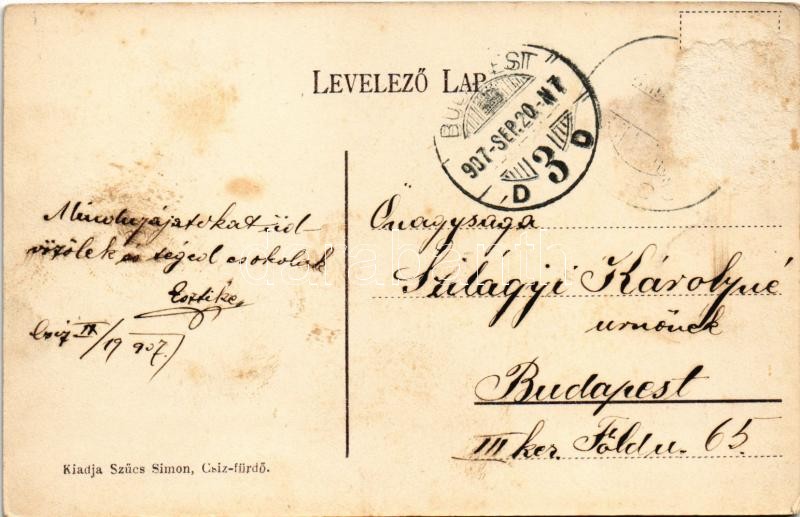 LEVELEZŐ LAP
BUDAPEST
907-SEP.20.-N7
3
D D
Mindnyájatokat üd-
vözölek és téged csókolak
Esztike
Csiz IX/19 907.
Önagysága
Szilágyi Károlyné
urnönek
Budapest
III ker. Föld u. 65.
Kiadja Szűcs Simon, Csiz-fürdő.
darabanth